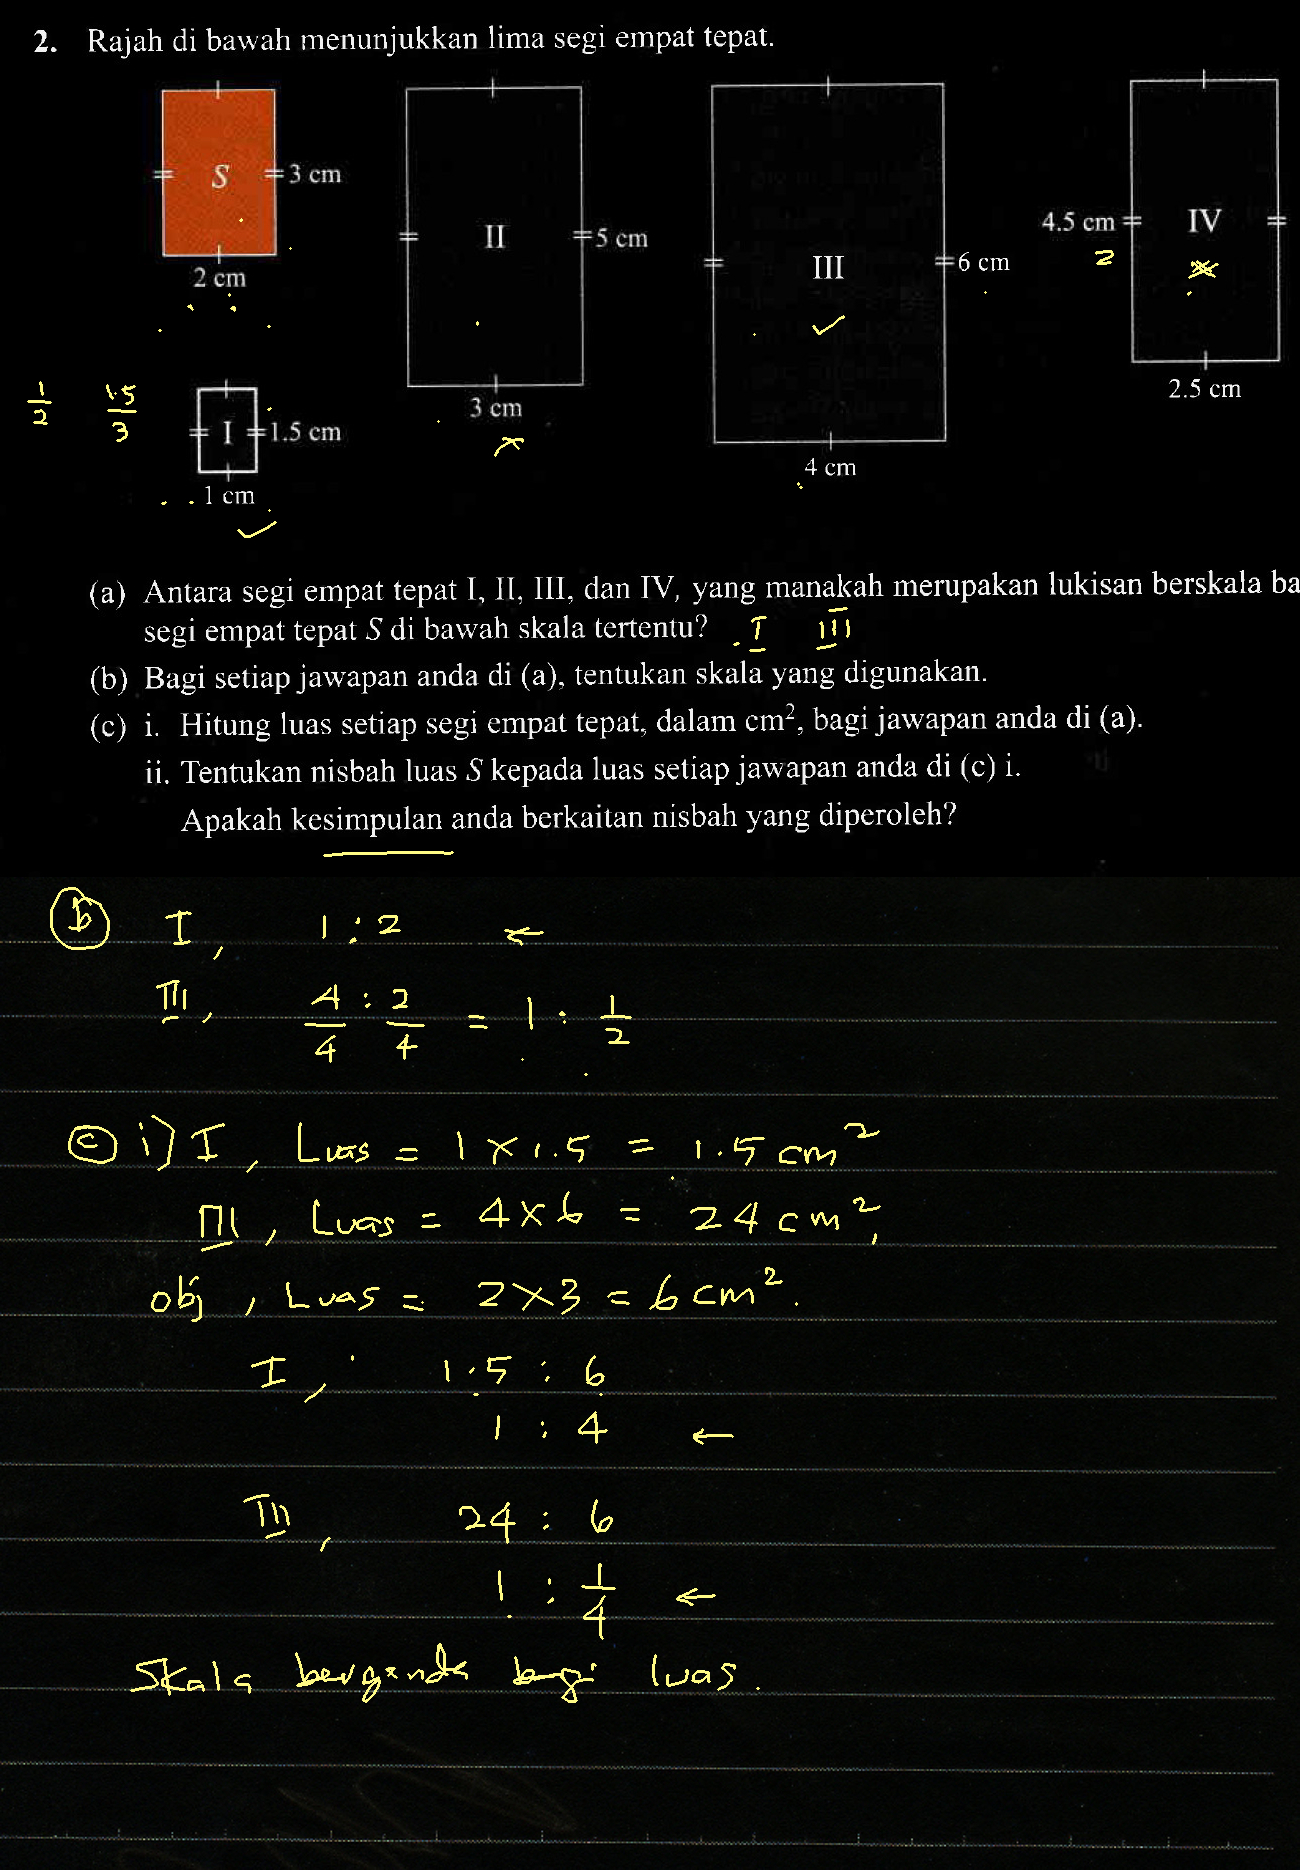 2. Rajah di bawah menunjukkan lima segi empat tepat.
S
3 cm
2 cm
II
5 cm
3 cm
III
6 cm
4 cm
4.5 cm
IV
2
2.5 cm
1/2
1.5/3
I
1.5 cm
1 cm
(a) Antara segi empat tepat I, II, III, dan IV, yang manakah merupakan lukisan berskala ba
segi empat tepat S di bawah skala tertentu? I III
(b) Bagi setiap jawapan anda di (a), tentukan skala yang digunakan.
(c) i. Hitung luas setiap segi empat tepat, dalam cm², bagi jawapan anda di (a).
ii. Tentukan nisbah luas S kepada luas setiap jawapan anda di (c) i.
Apakah kesimpulan anda berkaitan nisbah yang diperoleh?
(b) I, 1 : 2 ←
III, 4/4 : 2/4 = 1 : 1/2
(c) i) I, Luas = 1 × 1.5 = 1.5 cm²
III, Luas = 4 × 6 = 24 cm²,
obj, Luas = 2 × 3 = 6 cm².
I, 1.5 : 6
1 : 4 ←
III, 24 : 6
1 : 1/4 ←
Skala berganda bagi luas.